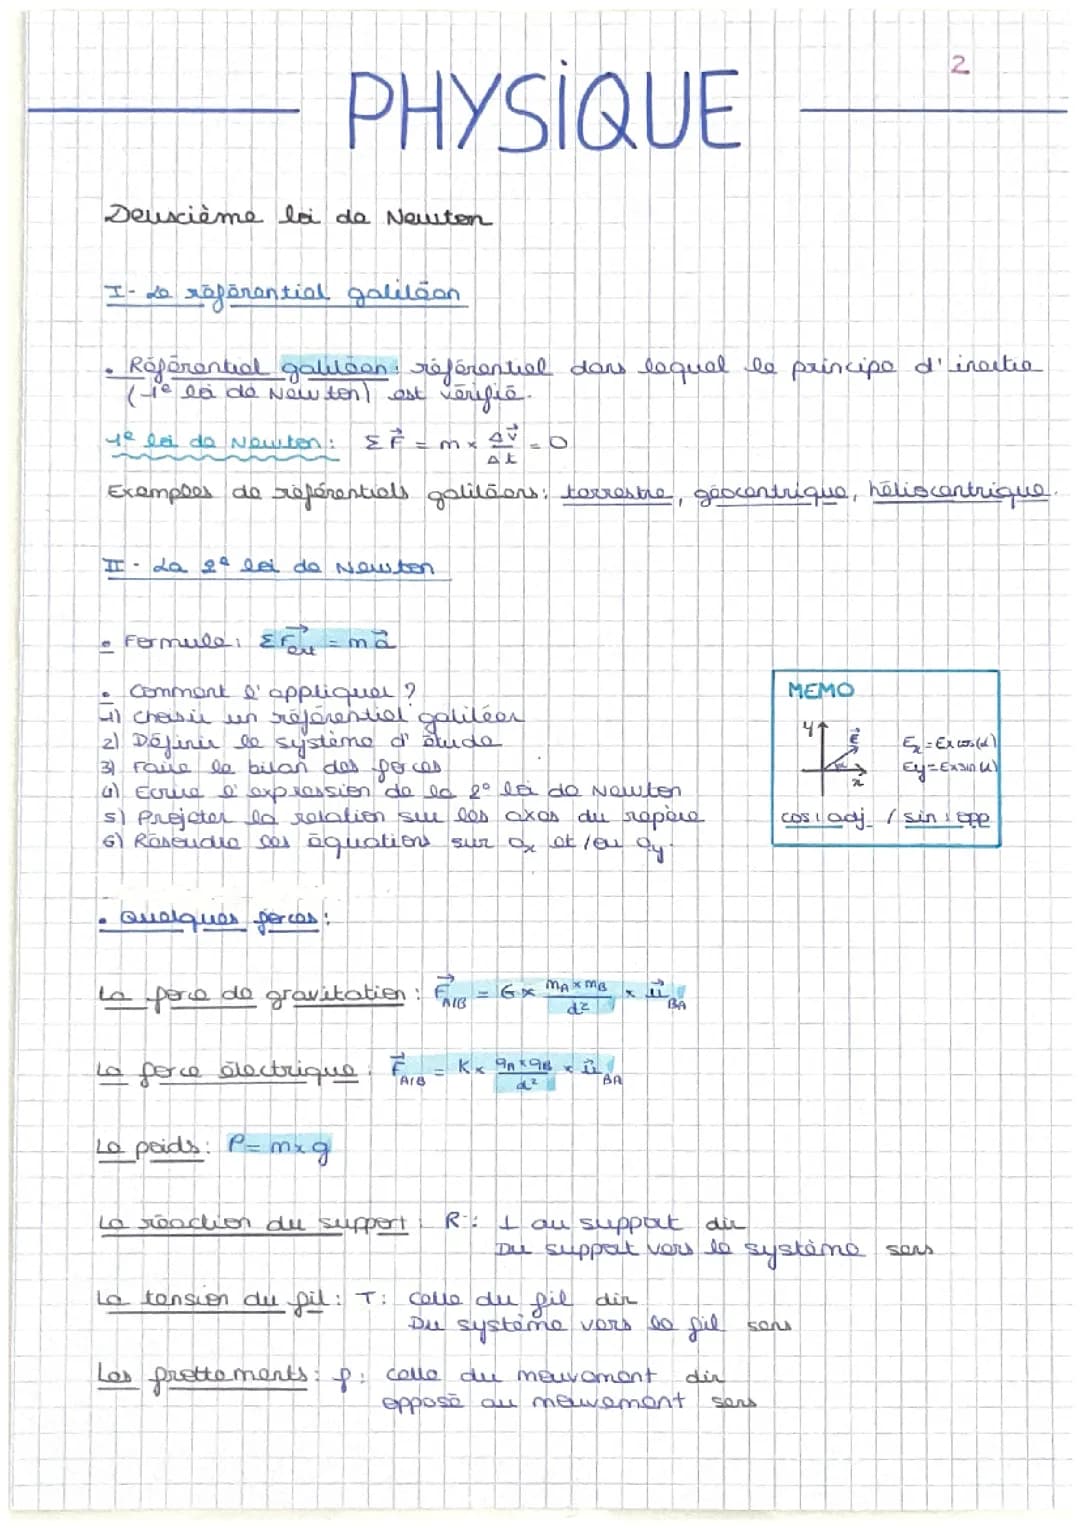 2
PHYSIQUE
Deuxième loi de Newton
I- Le référentiel galiléen
• Référentiel galiléen : référentiel dans lequel le principe d'inertie
(1e loi de Newton) est vérifié.
1e loi de Newton : Σ F⃗ = m × Δv⃗/Δt = 0
Exemples de référentiels galiléens : terrestre, géocentrique, héliocentrique.
II - La 2e loi de Newton
• Formule : ΣF⃗ext = m a⃗
• Comment l'appliquer ?
1) Choisir un référentiel galiléen
2) Définir le système d'étude
3) Faire le bilan des forces
4) Ecrire l'expression de la 2e loi de Newton
5) Projeter la relation sur les axes du repère
6) Résoudre les équations sur ax et/ou ay.
MEMO
y E⃗ α x
Ex = E×cos(α)
Ey = E×sin(α)
cos : adj / sin : opp
• Quelques forces :
La force de gravitation : F⃗A/B = G × mA×mB/d² × u⃗BA
La force électrique : F⃗A/B = K × qA×qB/d² × u⃗BA
Le poids : P = m×g
La réaction du support : R : ⊥ au support dir
Du support vers le système sens
La tension du fil : T : celle du fil dir
Du système vers le fil sens
Les frottements : f : celle du mouvement dir
opposé au mouvement sens